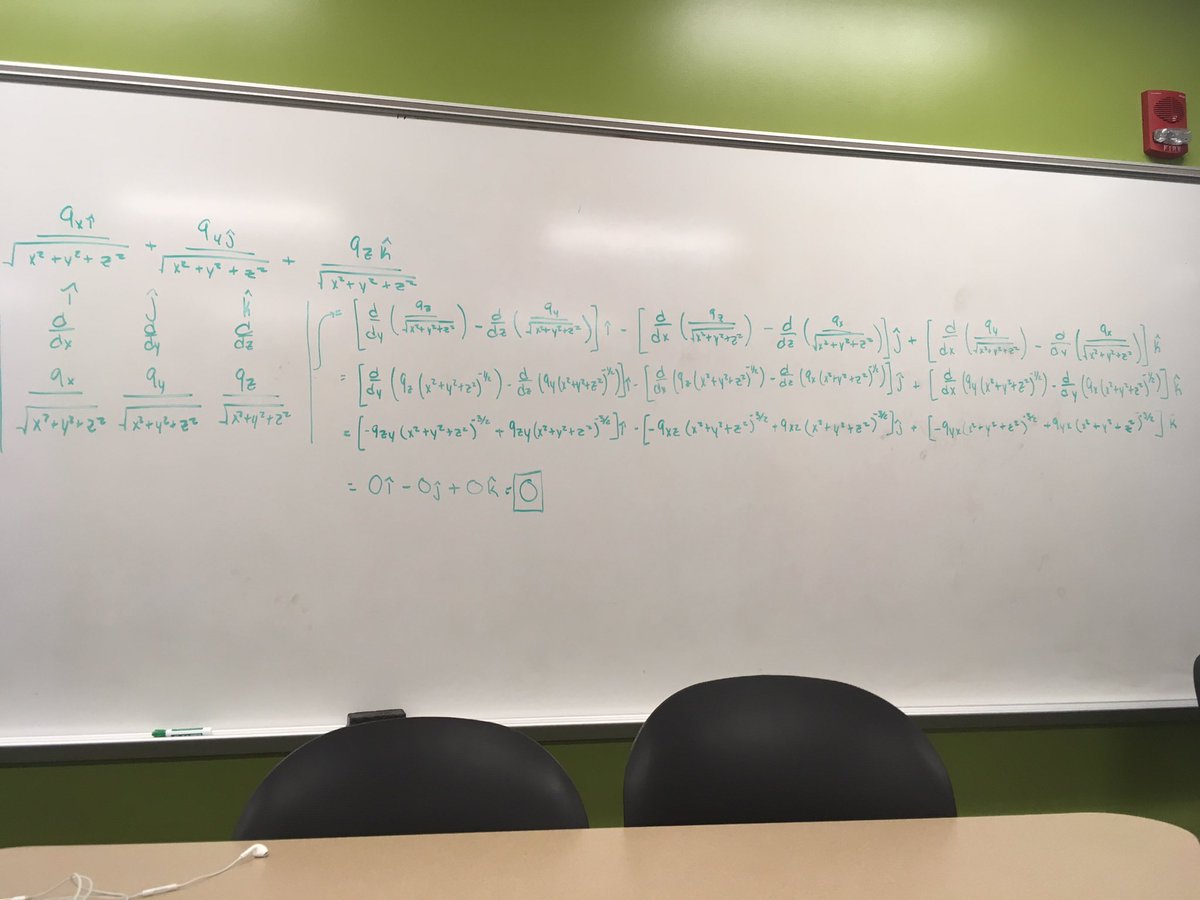 qxî/√(x²+y²+z²) + qyĵ/√(x²+y²+z²) + qzk̂/√(x²+y²+z²)
| î ĵ k̂ |
| d/dx d/dy d/dz |
| qx/√(x²+y²+z²) qy/√(x²+y²+z²) qz/√(x²+y²+z²) |
= [d/dy (qz/√(x²+y²+z²)) - d/dz (qy/√(x²+y²+z²))]î - [d/dx (qz/√(x²+y²+z²)) - d/dz (qx/√(x²+y²+z²))]ĵ + [d/dx (qy/√(x²+y²+z²)) - d/dy (qx/√(x²+y²+z²))]k̂
= [d/dy (qz(x²+y²+z²)^-1/2) - d/dz (qy(x²+y²+z²)^-1/2)]î - [d/dx (qz(x²+y²+z²)^-1/2) - d/dz (qx(x²+y²+z²)^-1/2)]ĵ + [d/dx (qy(x²+y²+z²)^-1/2) - d/dy (qx(x²+y²+z²)^-1/2)]k̂
= [-qzy(x²+y²+z²)^-3/2 + qzy(x²+y²+z²)^-3/2]î - [-qxz(x²+y²+z²)^-3/2 + qxz(x²+y²+z²)^-3/2]ĵ + [-qyx(x²+y²+z²)^-3/2 + qyx(x²+y²+z²)^-3/2]k̂
= 0î - 0ĵ + 0k̂ = 0
FIRE